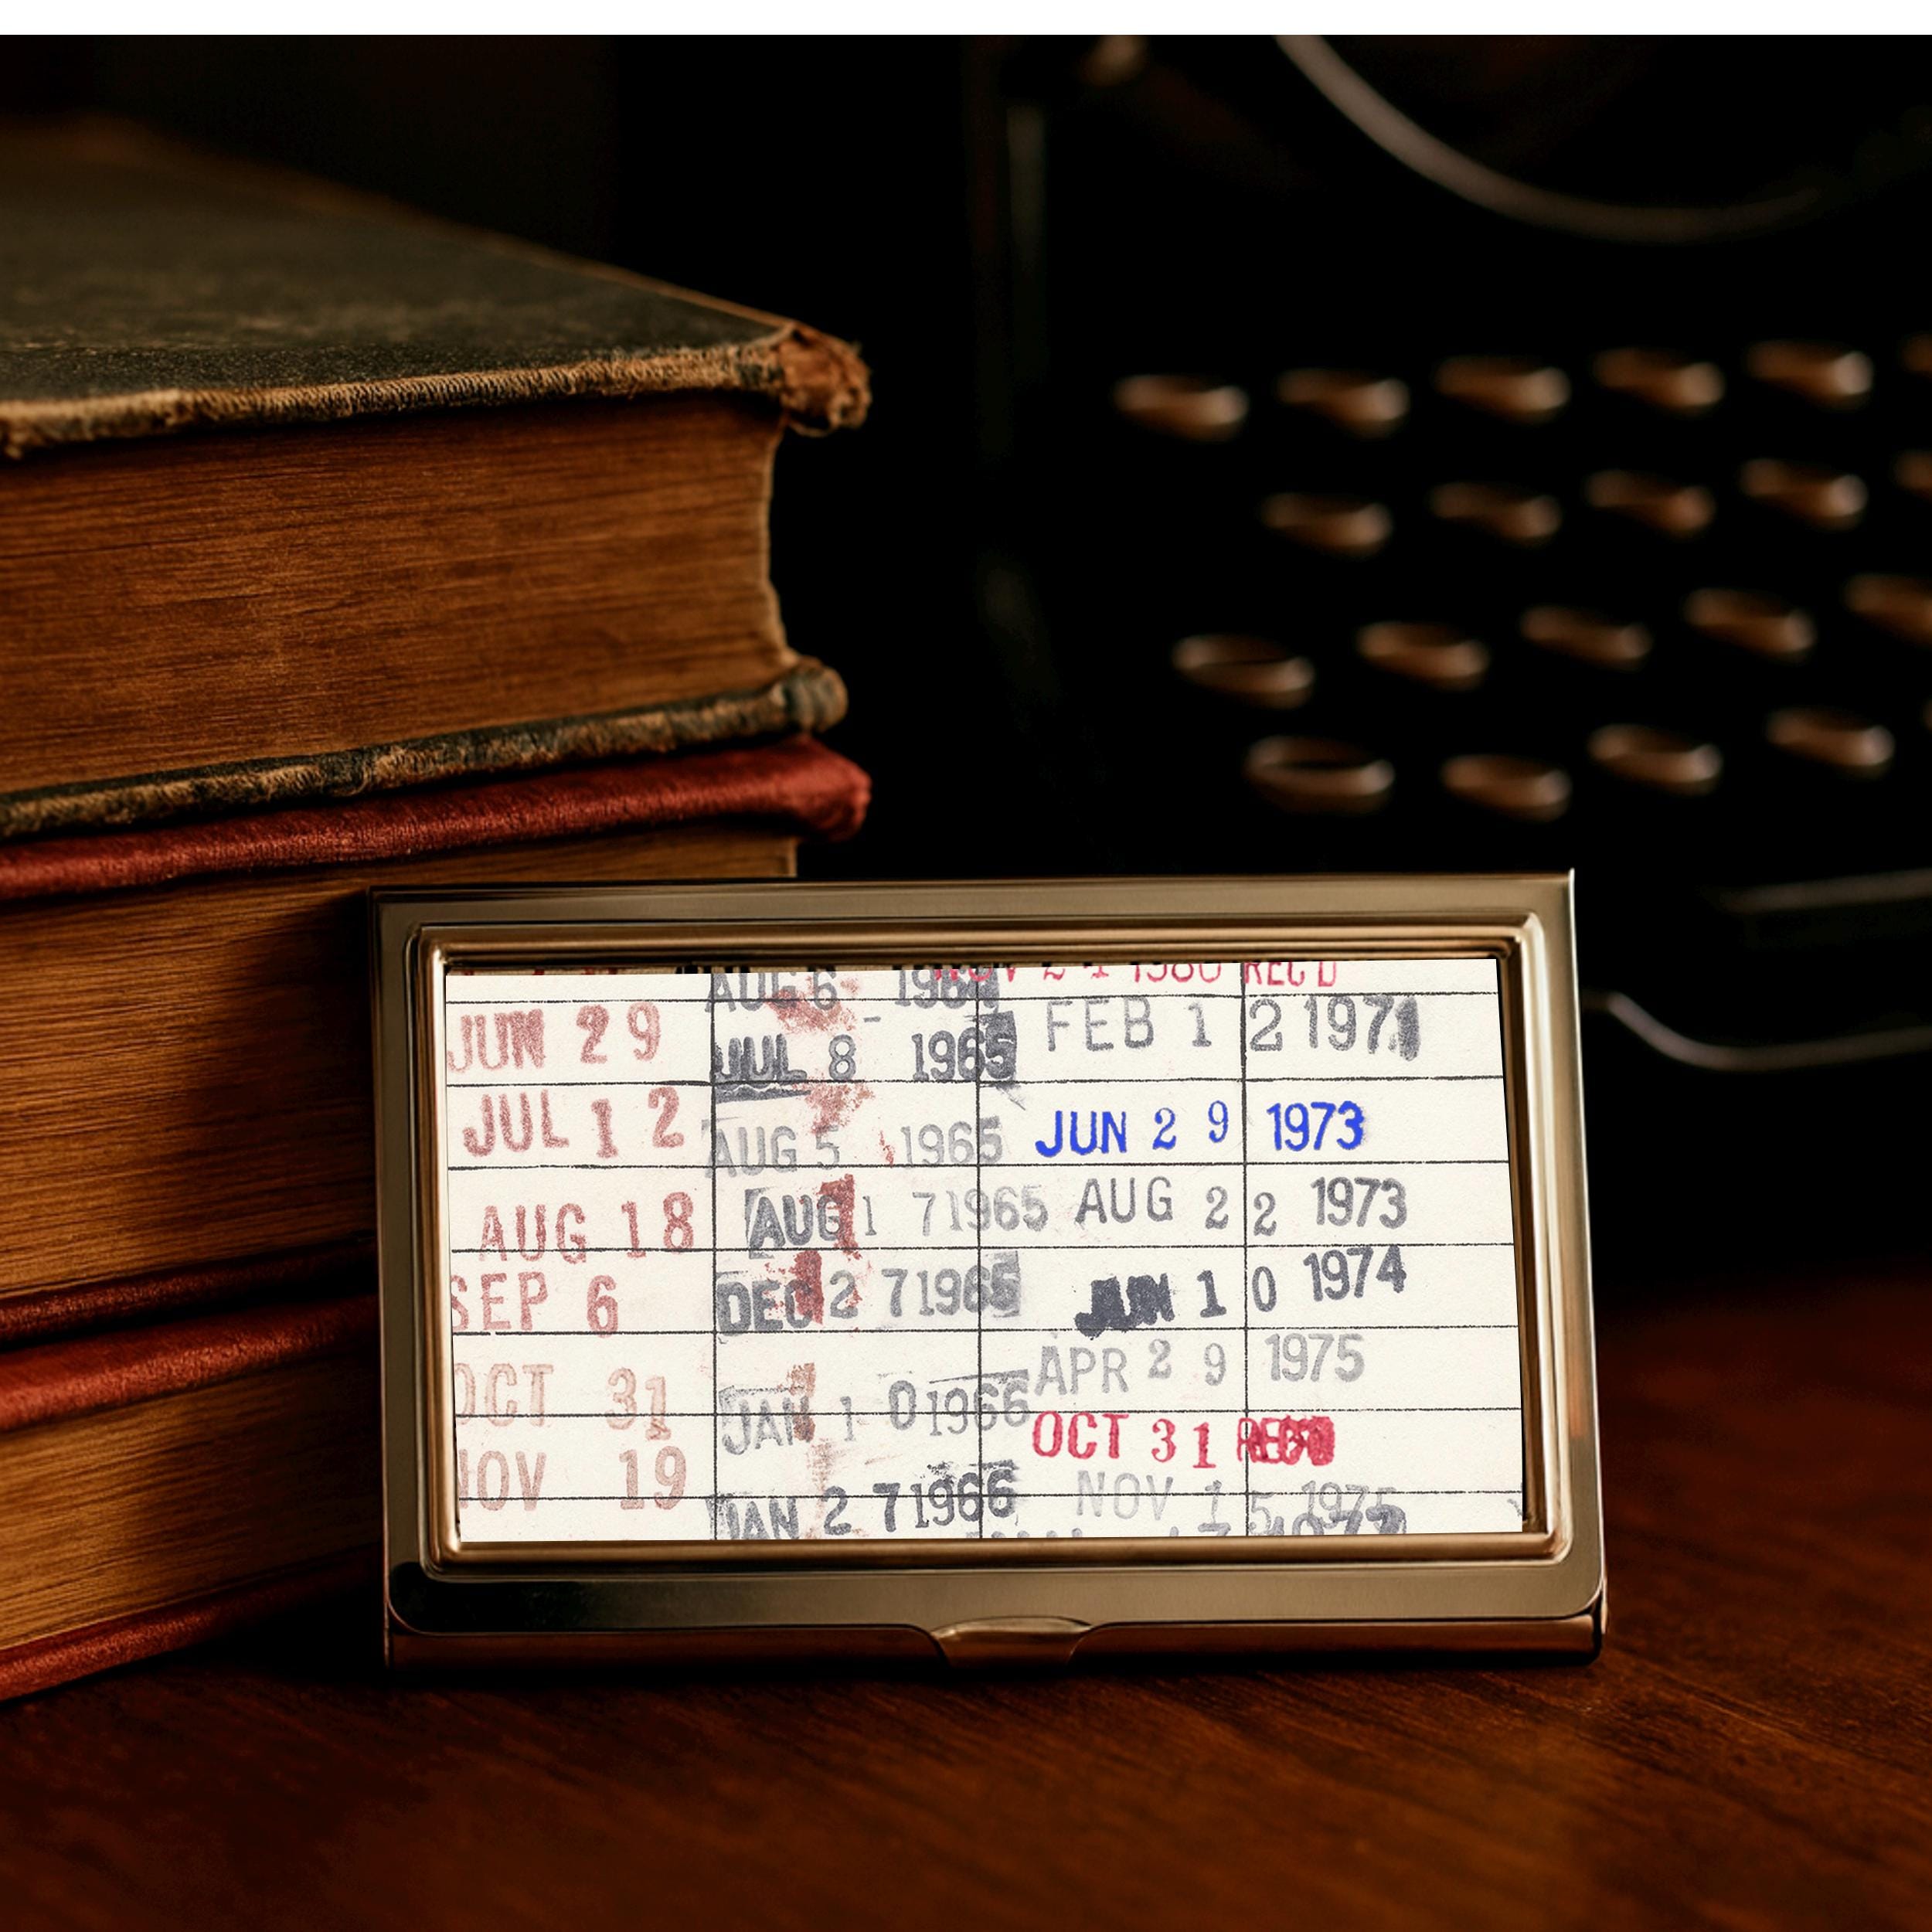 JUN 29
JUL 12
AUG 18
SEP 6
OCT 31
NOV 19
AUG 6 196
JUL 8 1965
AUG 5 1965
AUG 1 7 1965
DEC 2 7 1965
JAN 1 0 1966
JAN 2 7 1966
NOV 2 1 1980 REC'D
FEB 1 2 1971
JUN 2 9 1973
AUG 2 2 1973
JUN 1 0 1974
APR 2 9 1975
OCT 3 1 REC'D
NOV 1 5 1975